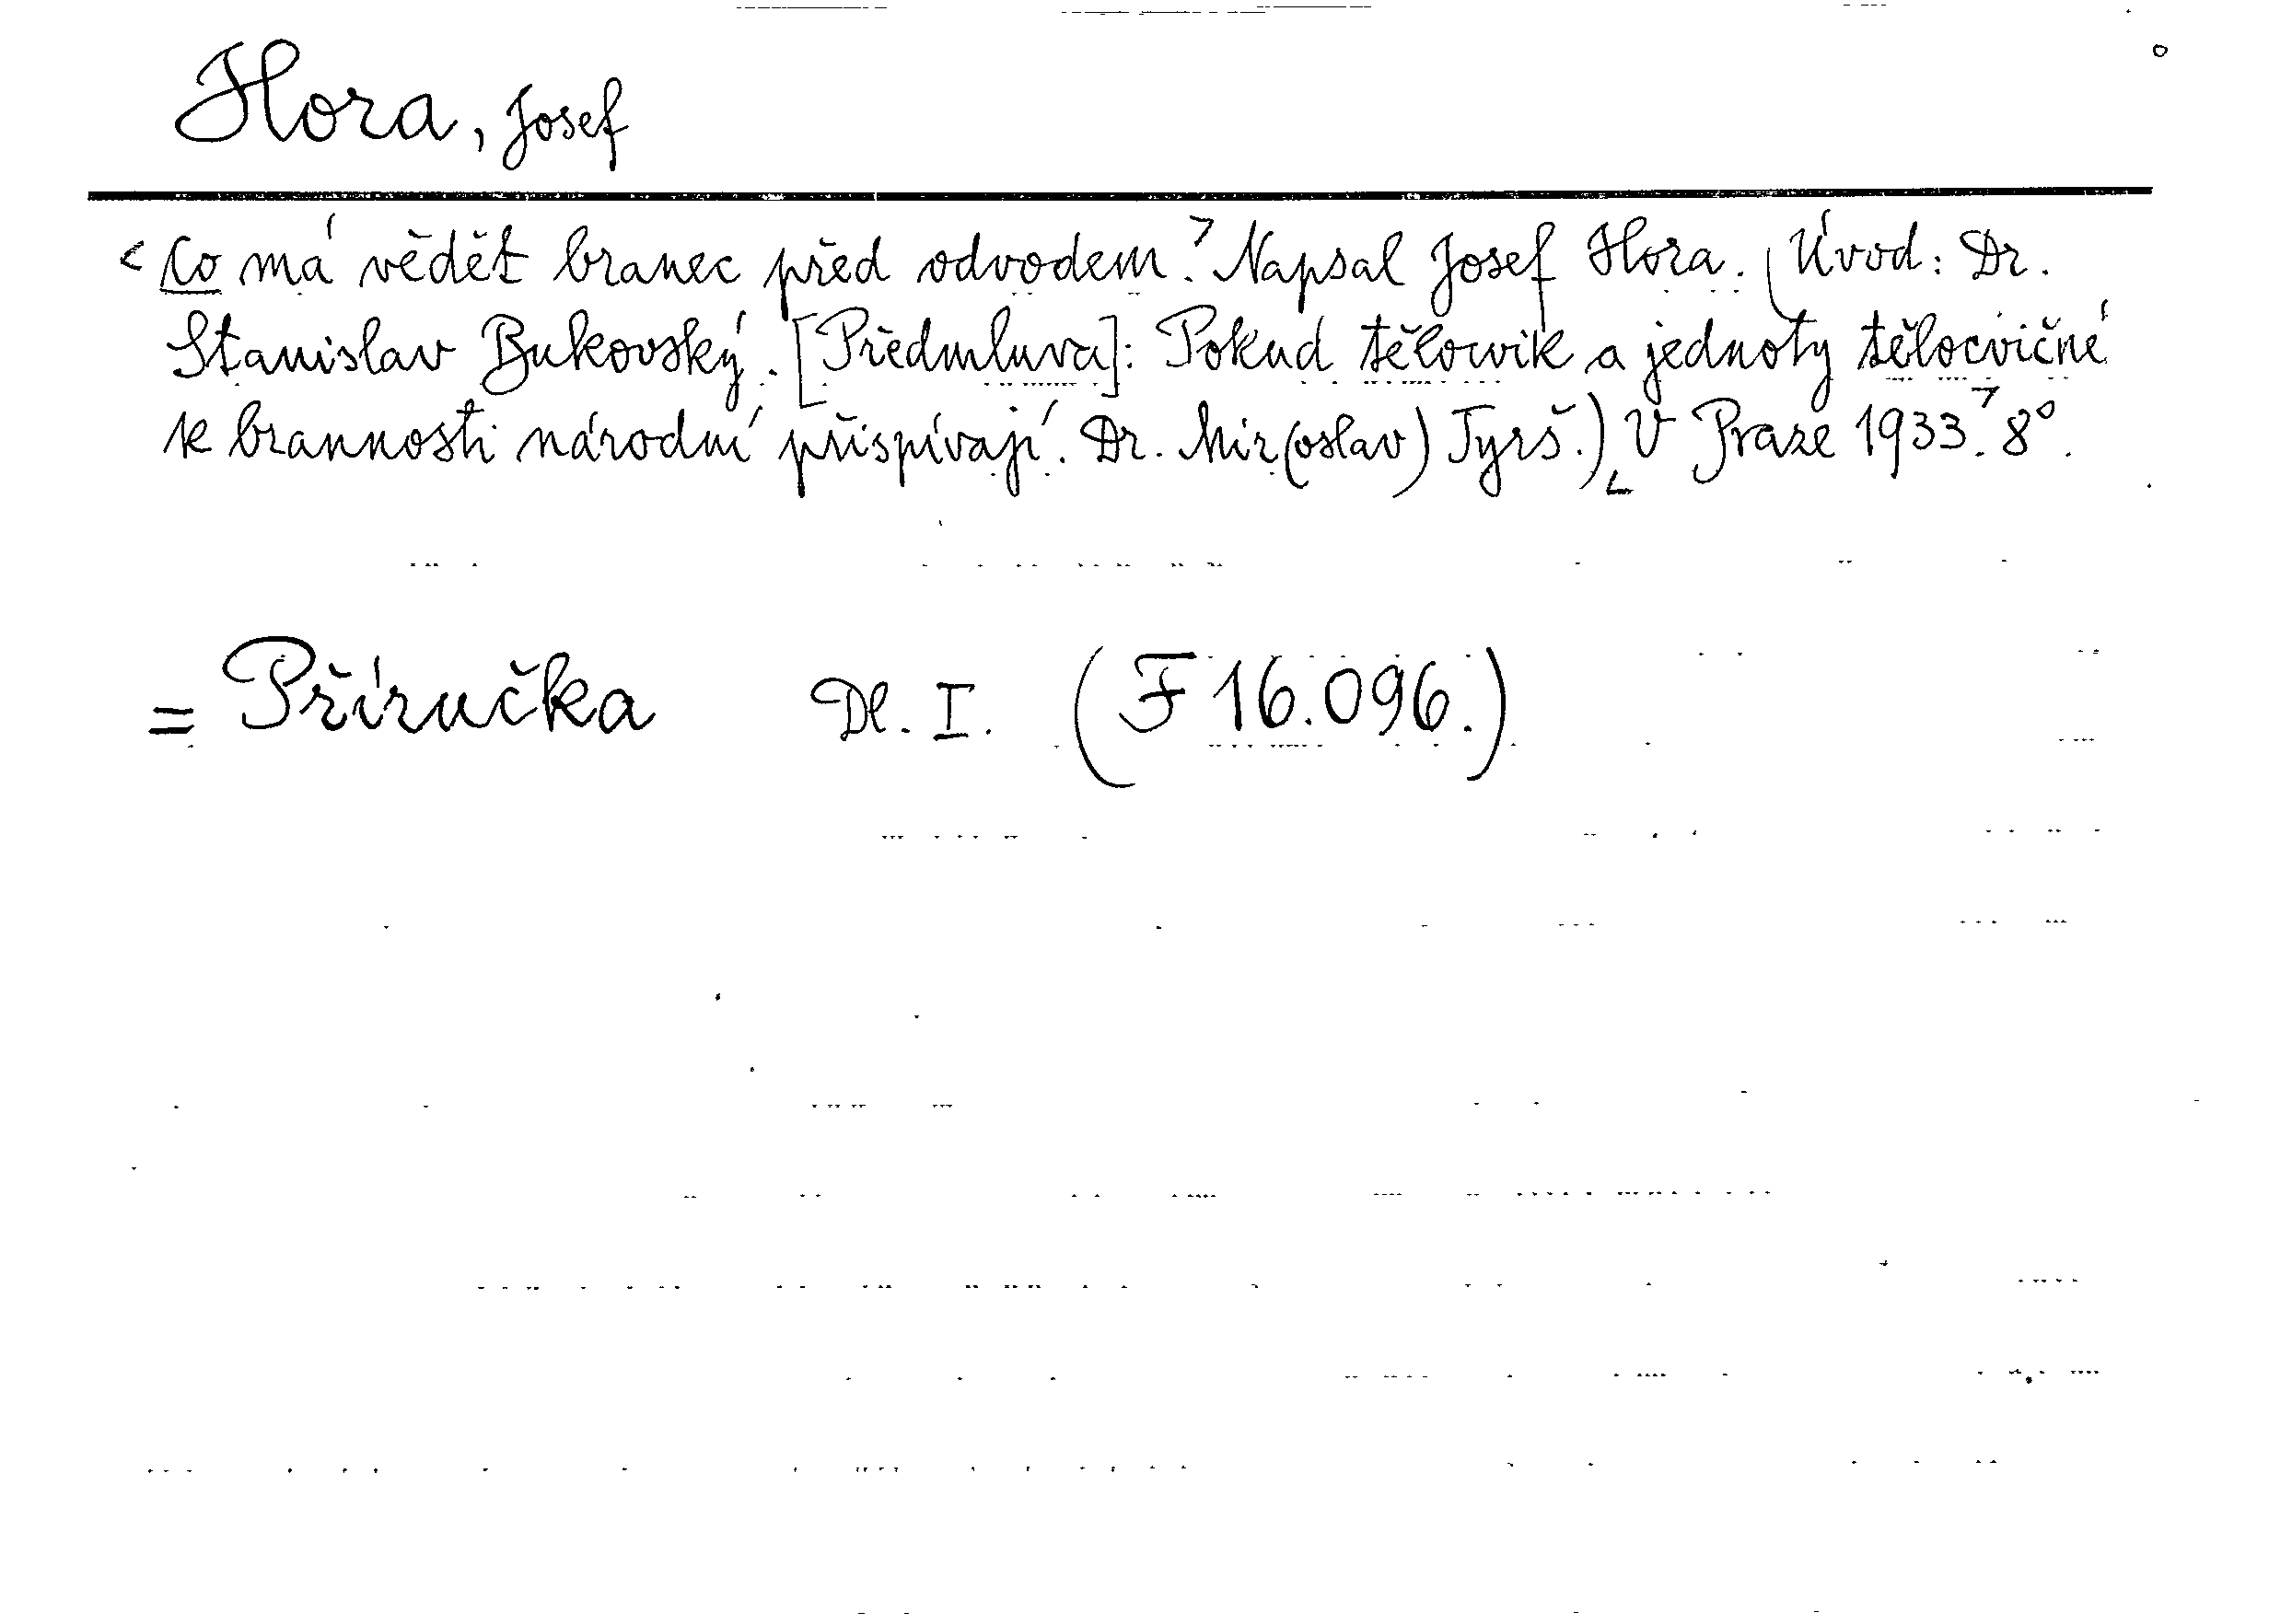 Hora, Josef
Co má vědět branec před odvodem? Napsal Josef Hora. (Úvod: Dr.
Stanislav Bukovský. [Předmluva]: Pokud tělocvik a jednoty tělocvičné
k brannosti národní přispívají. Dr. Mir(oslav) Tyrš.) V Praze 1933. 8°.
= Příručka Dl. I. (F 16.096.)